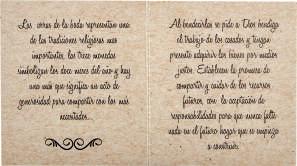 Las arras de la boda representan una
de las tradiciones religiosas mas
importantes, las trece monedas
simbolizan los doce meses del año y hay
una más que significa un acto de
generosidad para compartir con los más
necesitados.
Al bendecirlas se pide a Dios bendiga
el trabajo de los casados y tengan
presente adquirir los bienes por medios
justos. Establecen la promesa de
compartir y cuidar de los recursos
futuros, con la aceptación de
responsabilidades para que nunca falte
nada en el futuro hogar que se empieza
a construir.